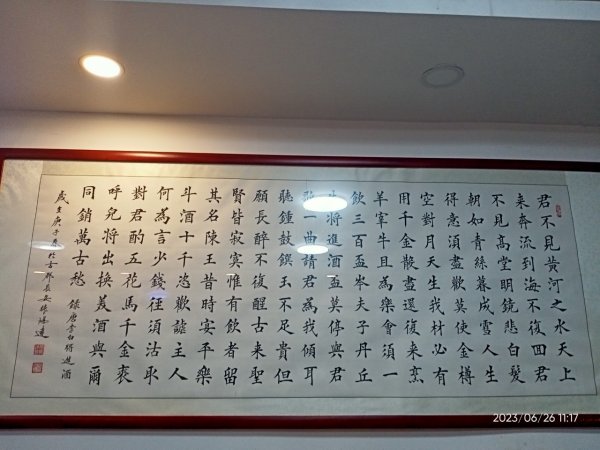 君不見黄河之水天上
来奔流到海不復回君
不見高堂明鏡悲白髮
朝如青絲暮成雪人生
得意須盡歡莫使金樽
空對月天生我材必有
用千金散盡還復来烹
羊宰牛且為樂會須一
飲三百盃岑夫子丹丘
生將進酒盃莫停與君
歌一曲請君為我傾耳
聽鍾鼓饌玉不足貴但
願長醉不復醒古来聖
賢皆寂寞惟有飲者留
其名陳王昔時宴平樂
斗酒十千恣歡謔主人
何為言少錢徑須沽取
對君酌五花馬千金裘
呼児將出換美酒與爾
同銷萬古愁 録唐李白將進酒
歲在庚子春於古都長安
2023/06/26 11:17